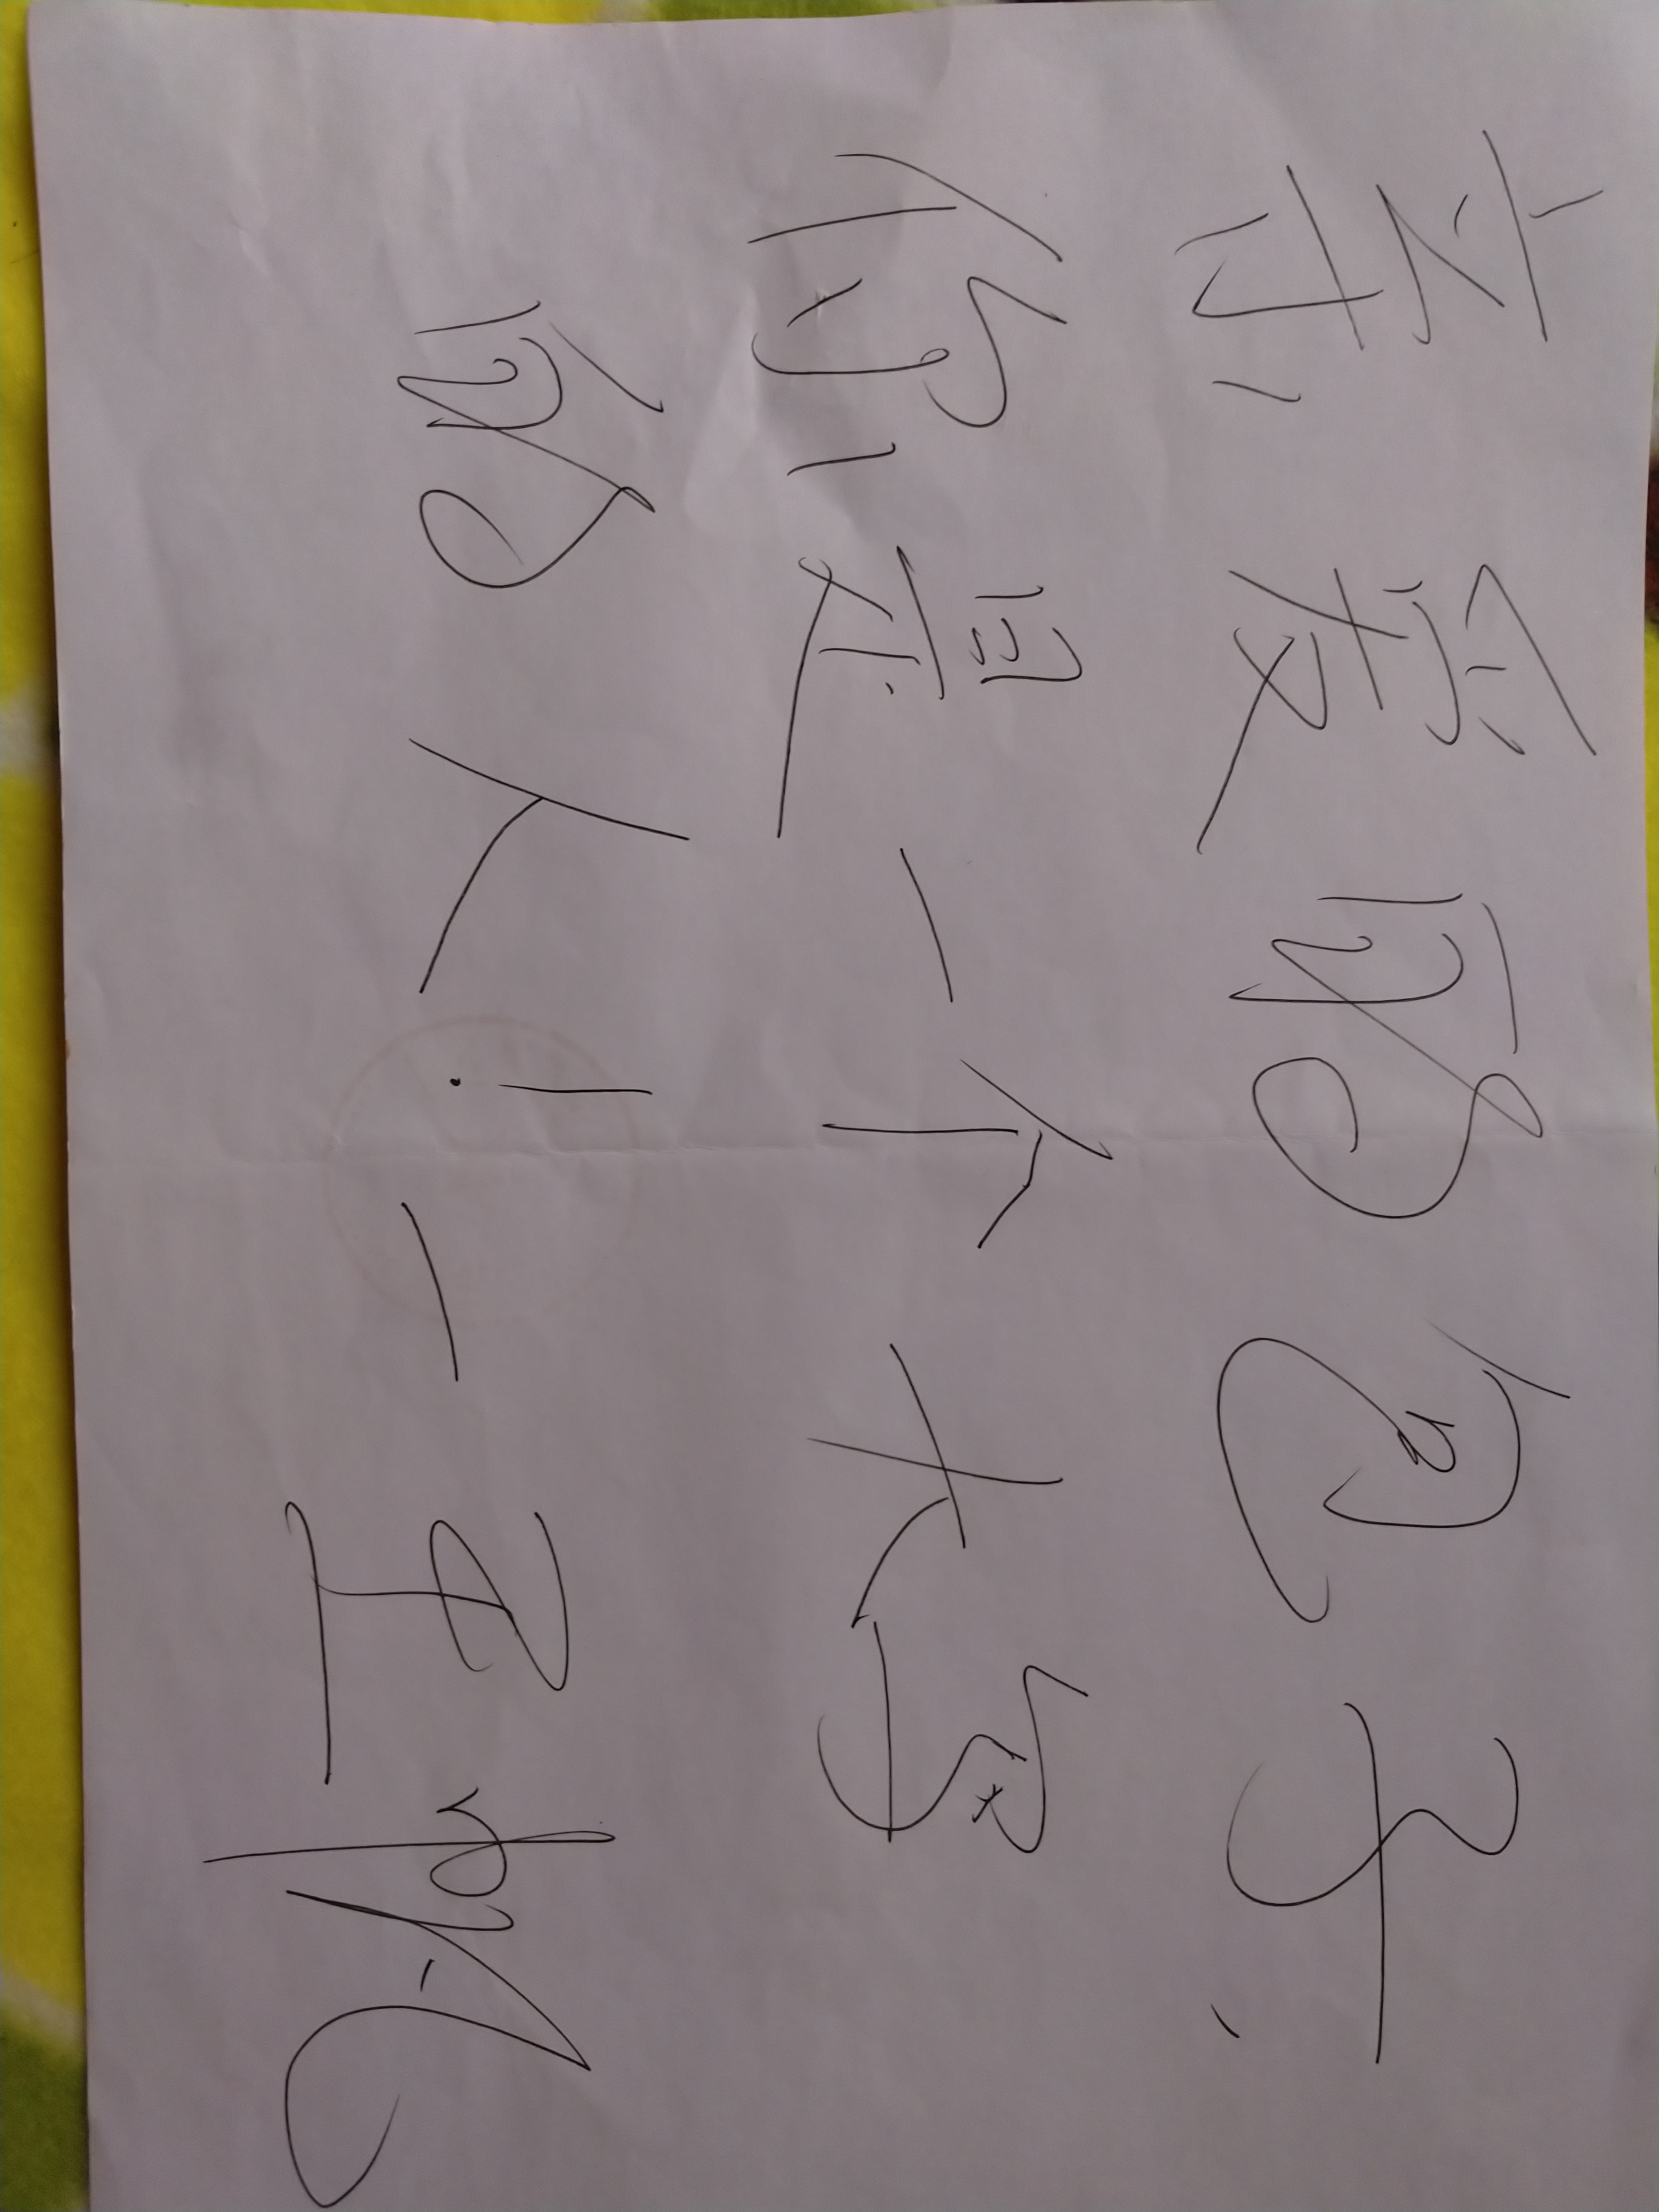 亲爱的包子,
你是一个大写
的人!—王帆